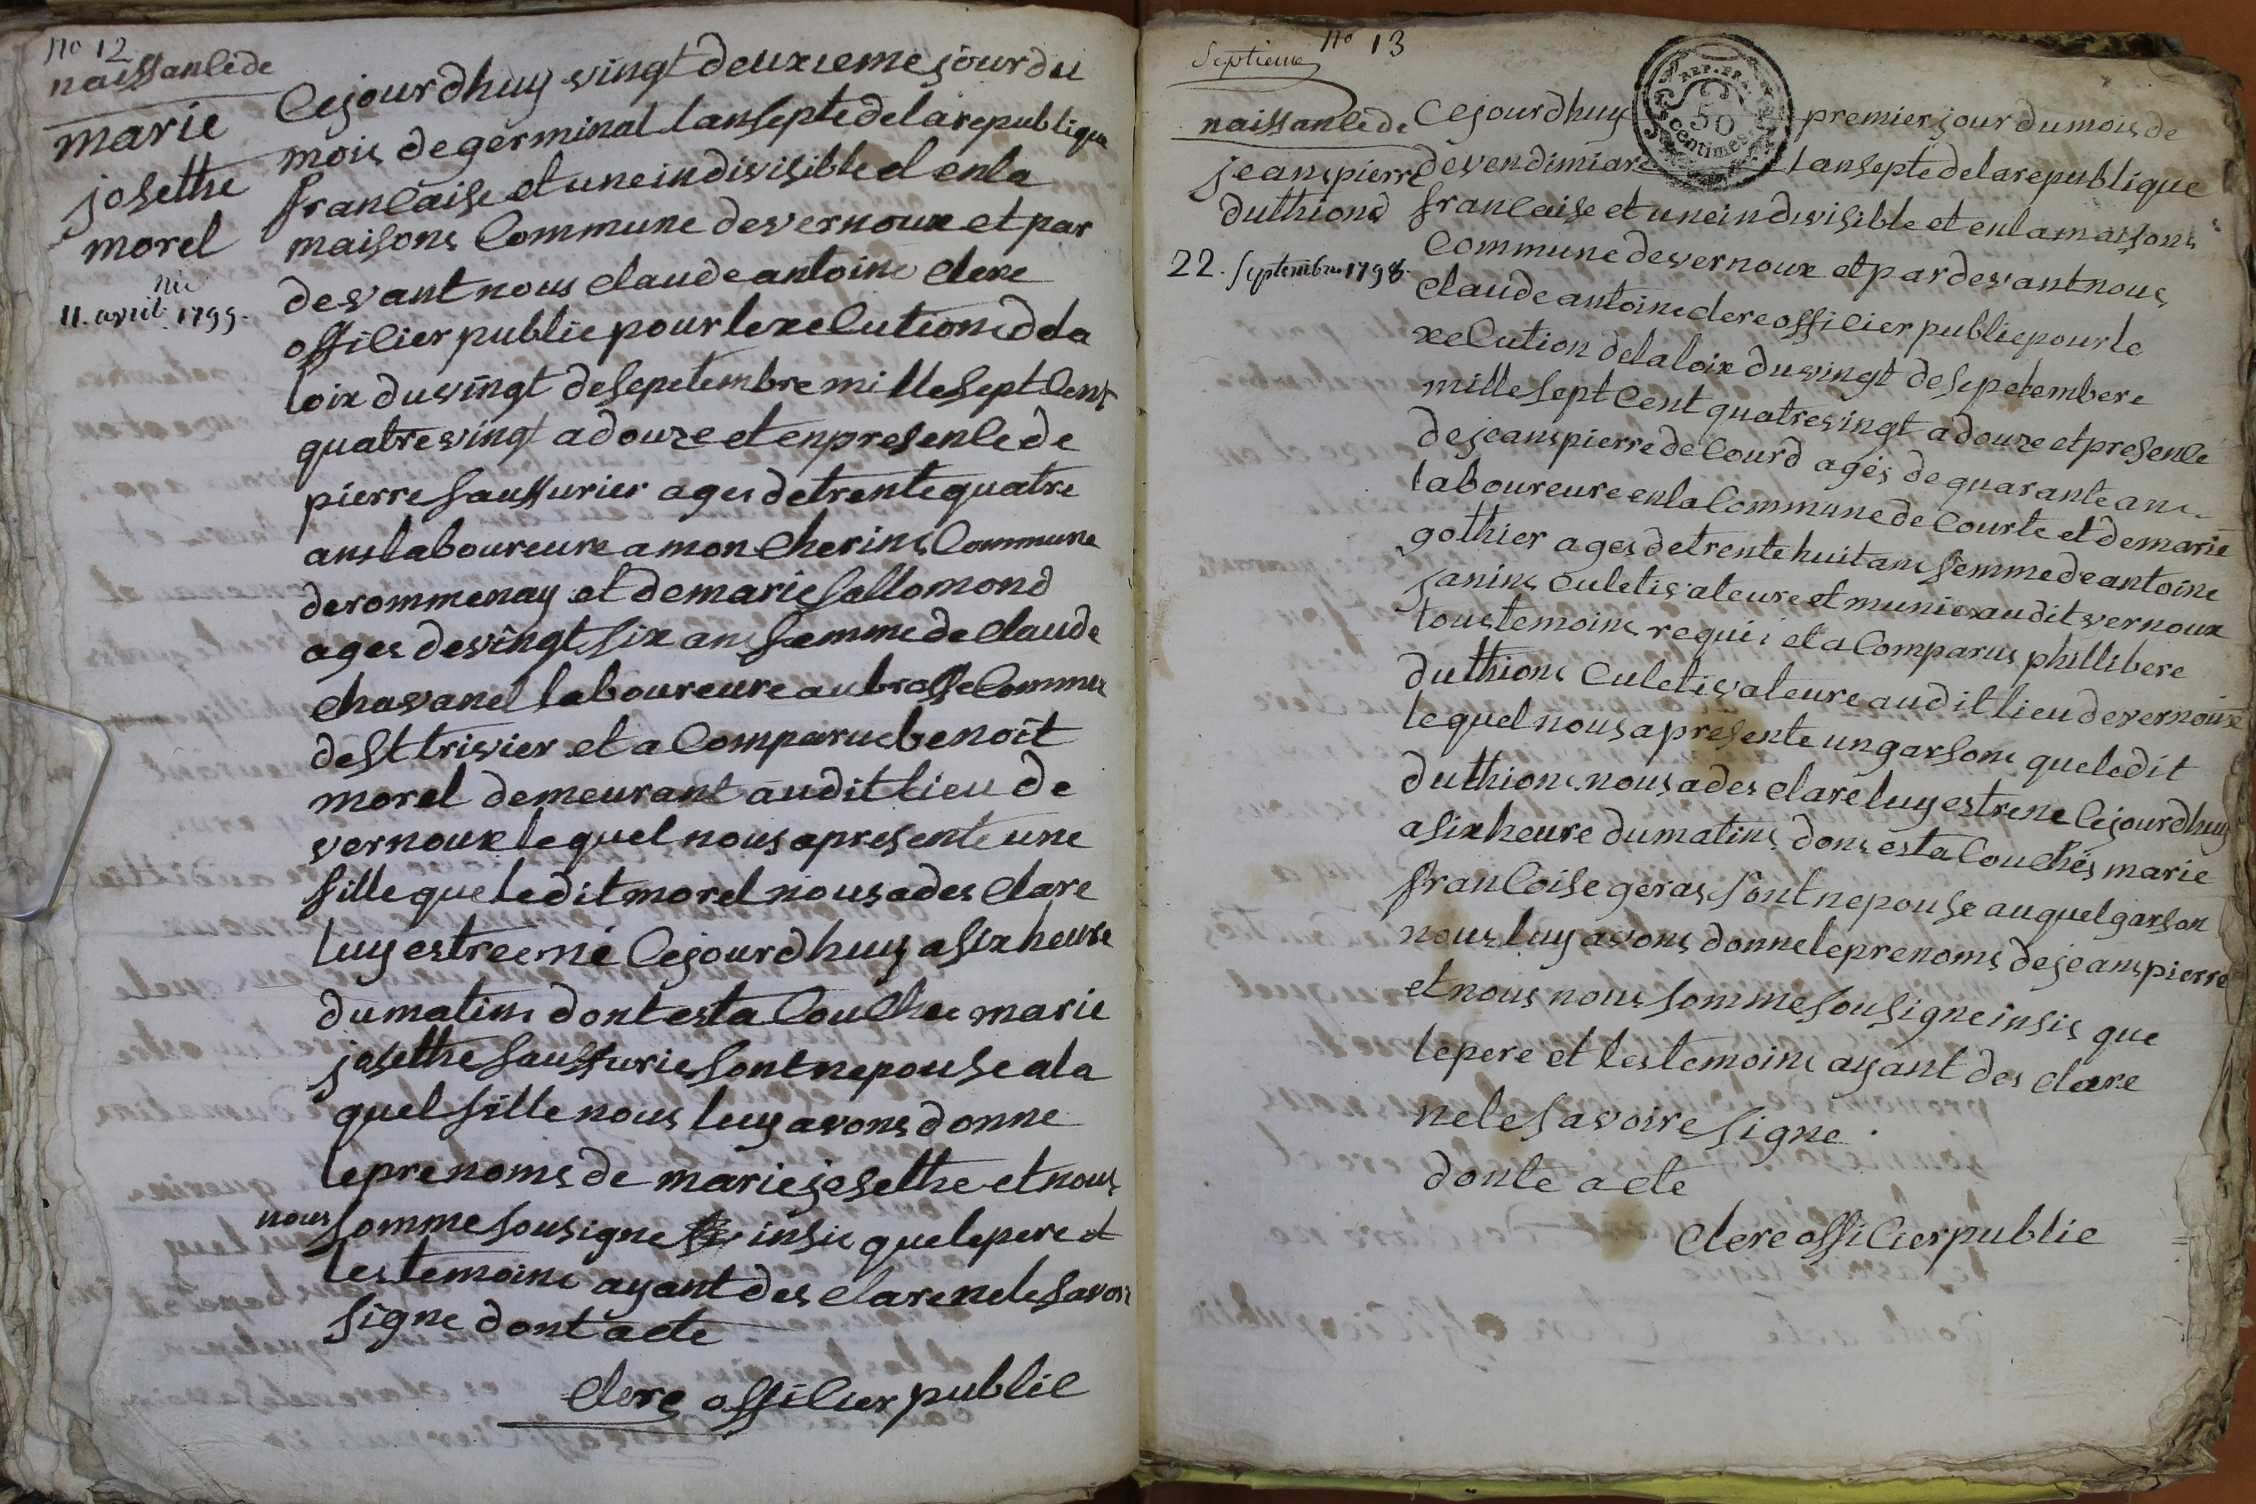 no 12
naissance de
marie
josethe
morel
née
11. avril 1799.
Cejourdhuy vingt deuxieme jour du
mois de germinal lan septe de la republique
francaise et une indivisible et en la
maisons Commune devernoux et par
devant nous claude antoine clere
officier public pour lexecutions dela
loix du vingt desepetembre mille sept Cent
quatre vingt adouze et en presence de
pierre saussurier ages de trente quatre
ans laboureure amon Cherins Commune
derommenay et de marie sallomond
ages de vingt six ans femme de claude
chavanel laboureure aubrasse Commune
de St trivier et a Comparue benoit
morel demeurant audit lieu de
vernoux lequel nous apresente une
fille que ledit morel nous ades clare
luy estree né Cejourdhuy asix heure
du matins dont esta Couchee marie
josethe saussurie sont nepouse ala
quel fille nous luy avons donne
leprenoms de marie josethe et nous
nous somme sousigne insie que lepere et
les temoins ayant des clare nele savoir
signe dont acte
clere officier public
Septieme no 13
naissance de
jeans pierre
duthiond
22. Septembre 1798.
REP. FRA.
50
centimes
Cejourdhuy premier jour dumois de
devendimiare lan septe de la republique
francaise et une indivisible et en la maisons
Commune devernoux et par devant nous
claude antoine clere officier public pour le
xecution de la loix du vingt de sepetembere
mille sept Cent quatre vingt adouze et presence
de jeans pierre de Courd agés de quarante ans
laboureure en la Commune de Courte et de marie
gothier ages de trente huit ans femme de antoine
janins culetivateure et munier audit vernoux
tous temoins requis et a Comparus phillibere
duthions Culetivateure audit lieu devernoux
lequel nous apresente un garsons que ledit
duthions nous ades claré luy estre ne Cejourdhuy
a six heure du matins dons esta Couchés marie
francoise geras sont nepouse auquel garson
nous luy avons donne leprenoms de jeans pierre
et nous nous somme sousigne insis que
lepere et les temoins ayant des clare
nele savoire signe.
donte acte
clere officier public